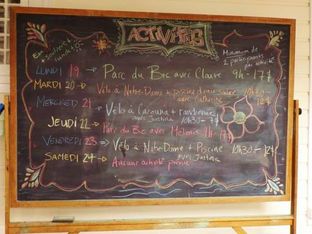 ACTIVITÉS
Minimum de
2 participants
par activité
LUNDI 19 → Parc du Bic avec Claire 9h - 17h
MARDI 20 → Vélo à Notre-Dame + piscine
MERCREDI 21 → Vélo à + randonnée
avec Justine 10h30 - 17h
JEUDI 22 → Parc du Bic avec 9h - 17h
VENDREDI 23 → Vélo à Notre-Dame + Piscine 10h30 -
avec Justine
SAMEDI 24 → Aucune activité prévue